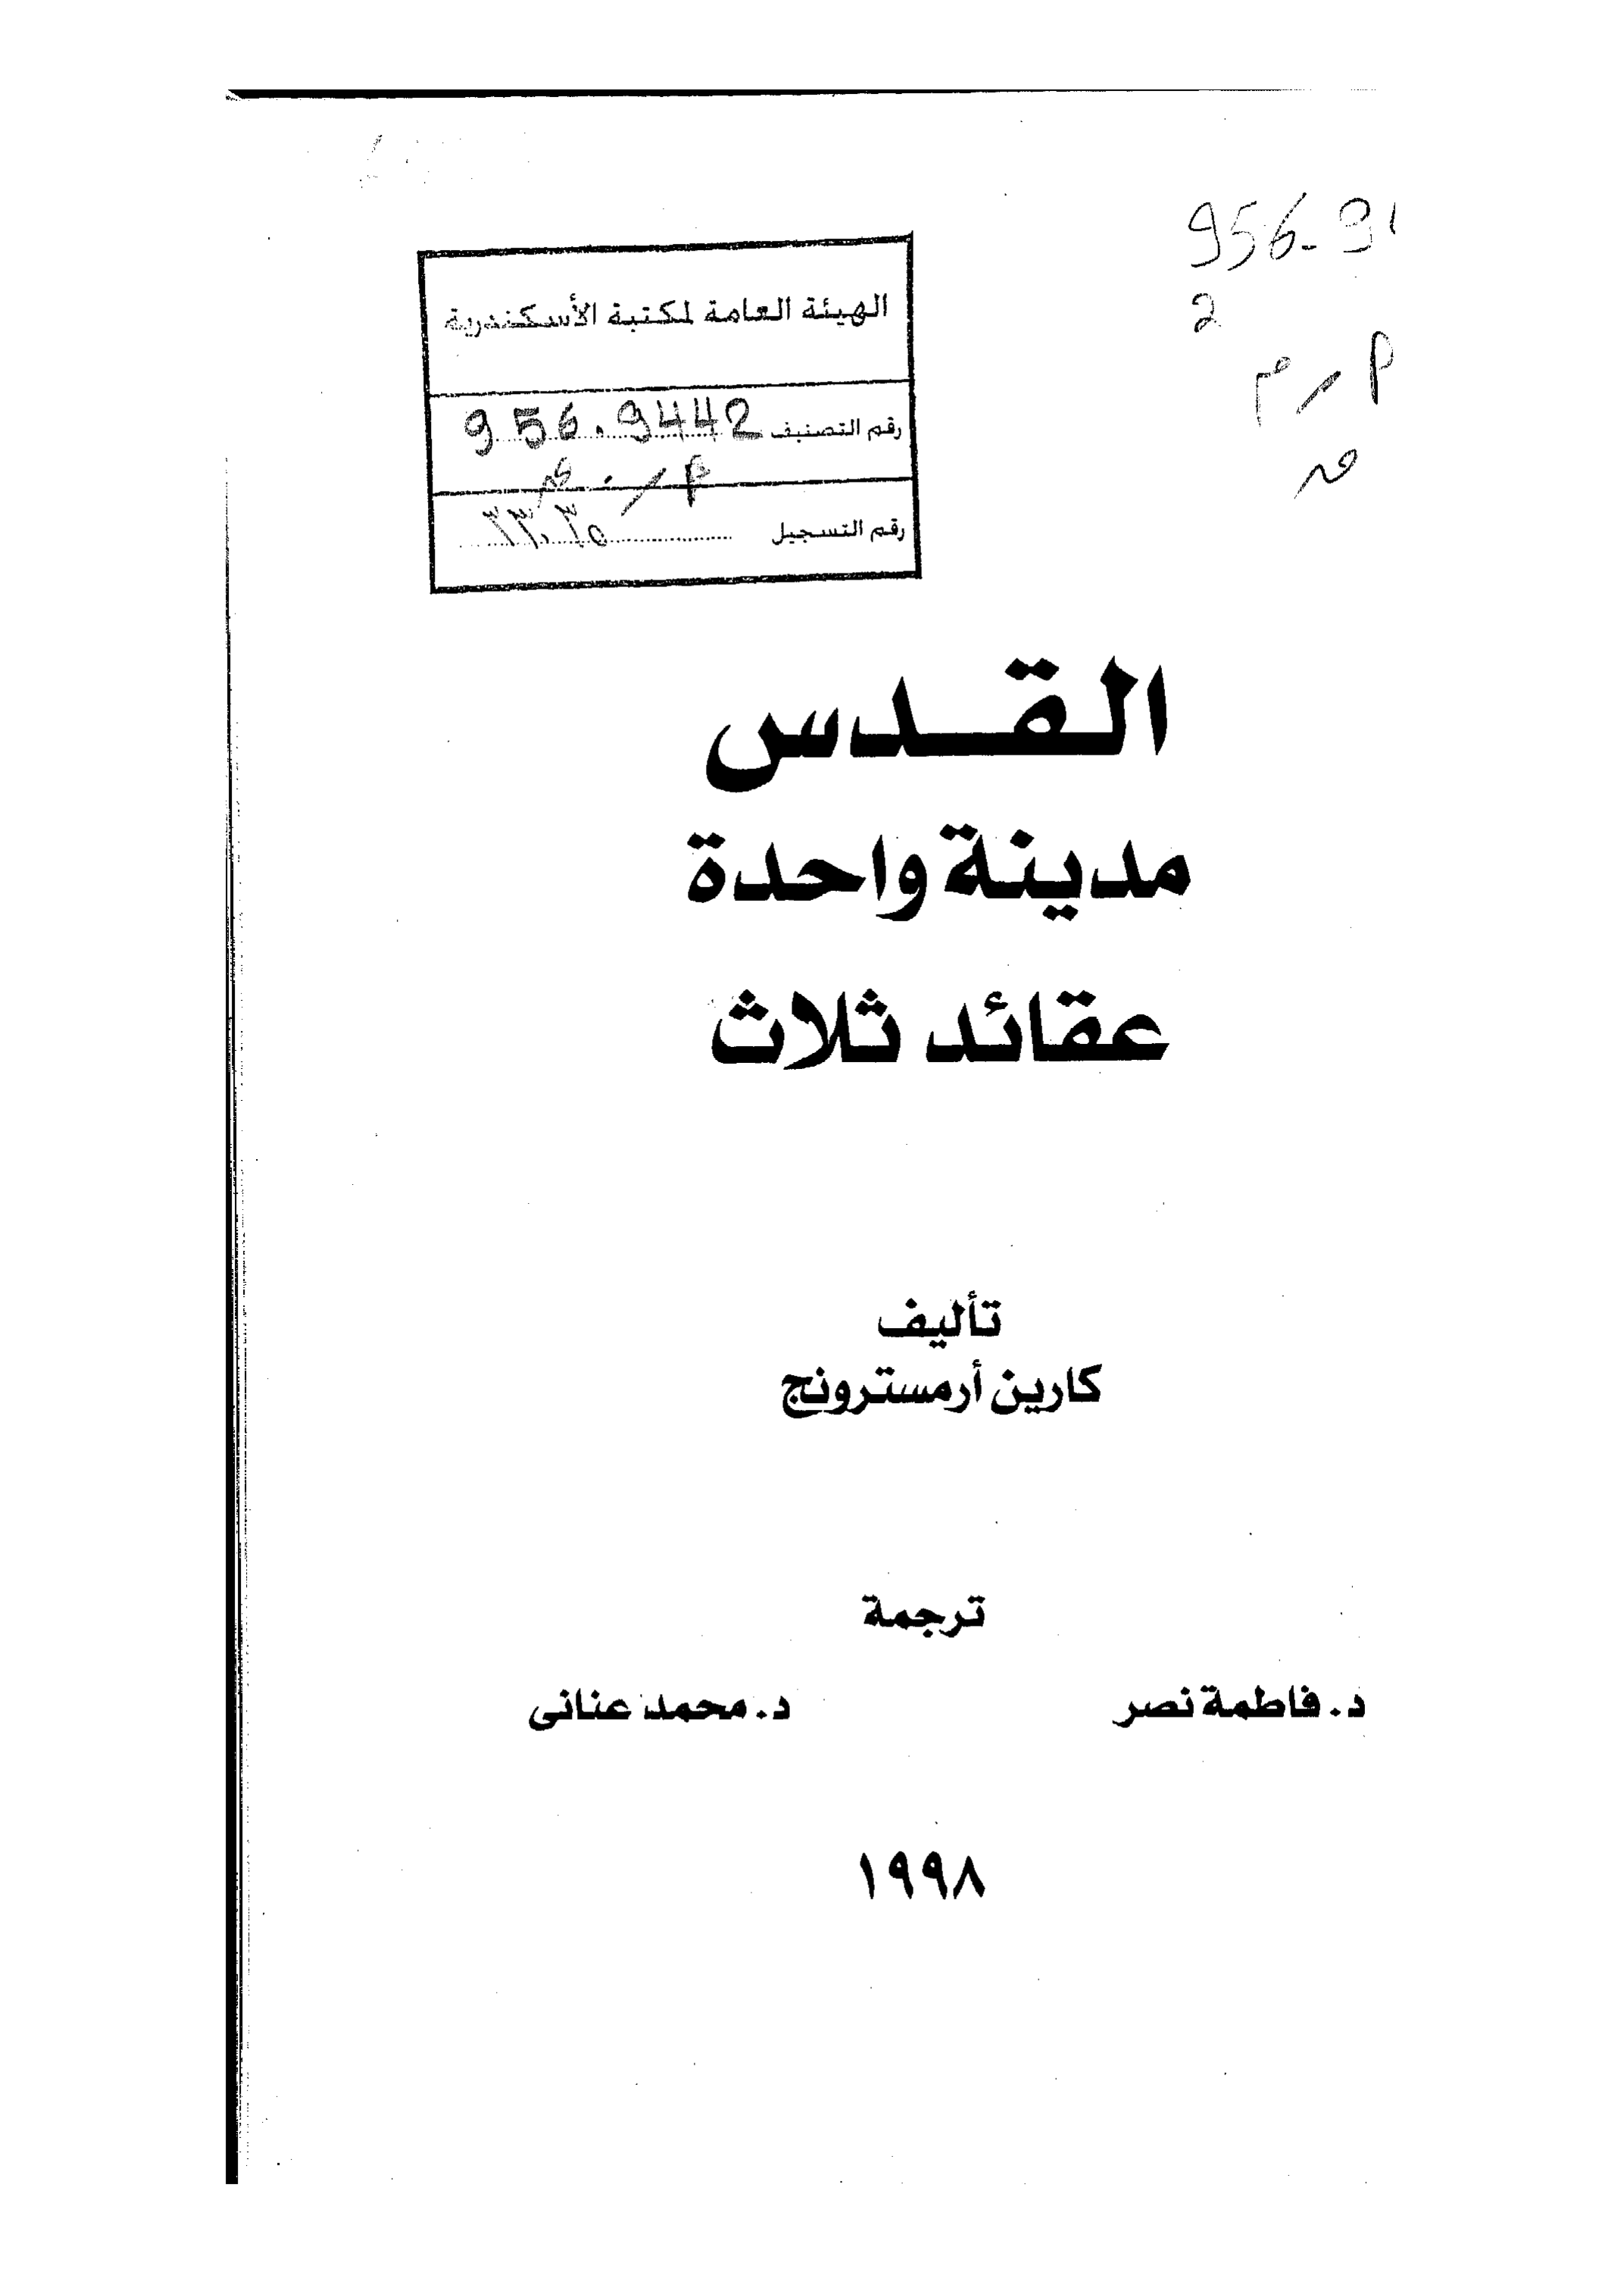 956.91
2
الهيئة العامة لمكتبة الأسكندرية
رقم التصنيف 956.9442
رقم التسجيل
القدس
مدينة واحدة
عقائد ثلاث
تأليف
كارين أرمسترونج
ترجمة
د. فاطمة نصر د. محمد عنانى
١٩٩٨